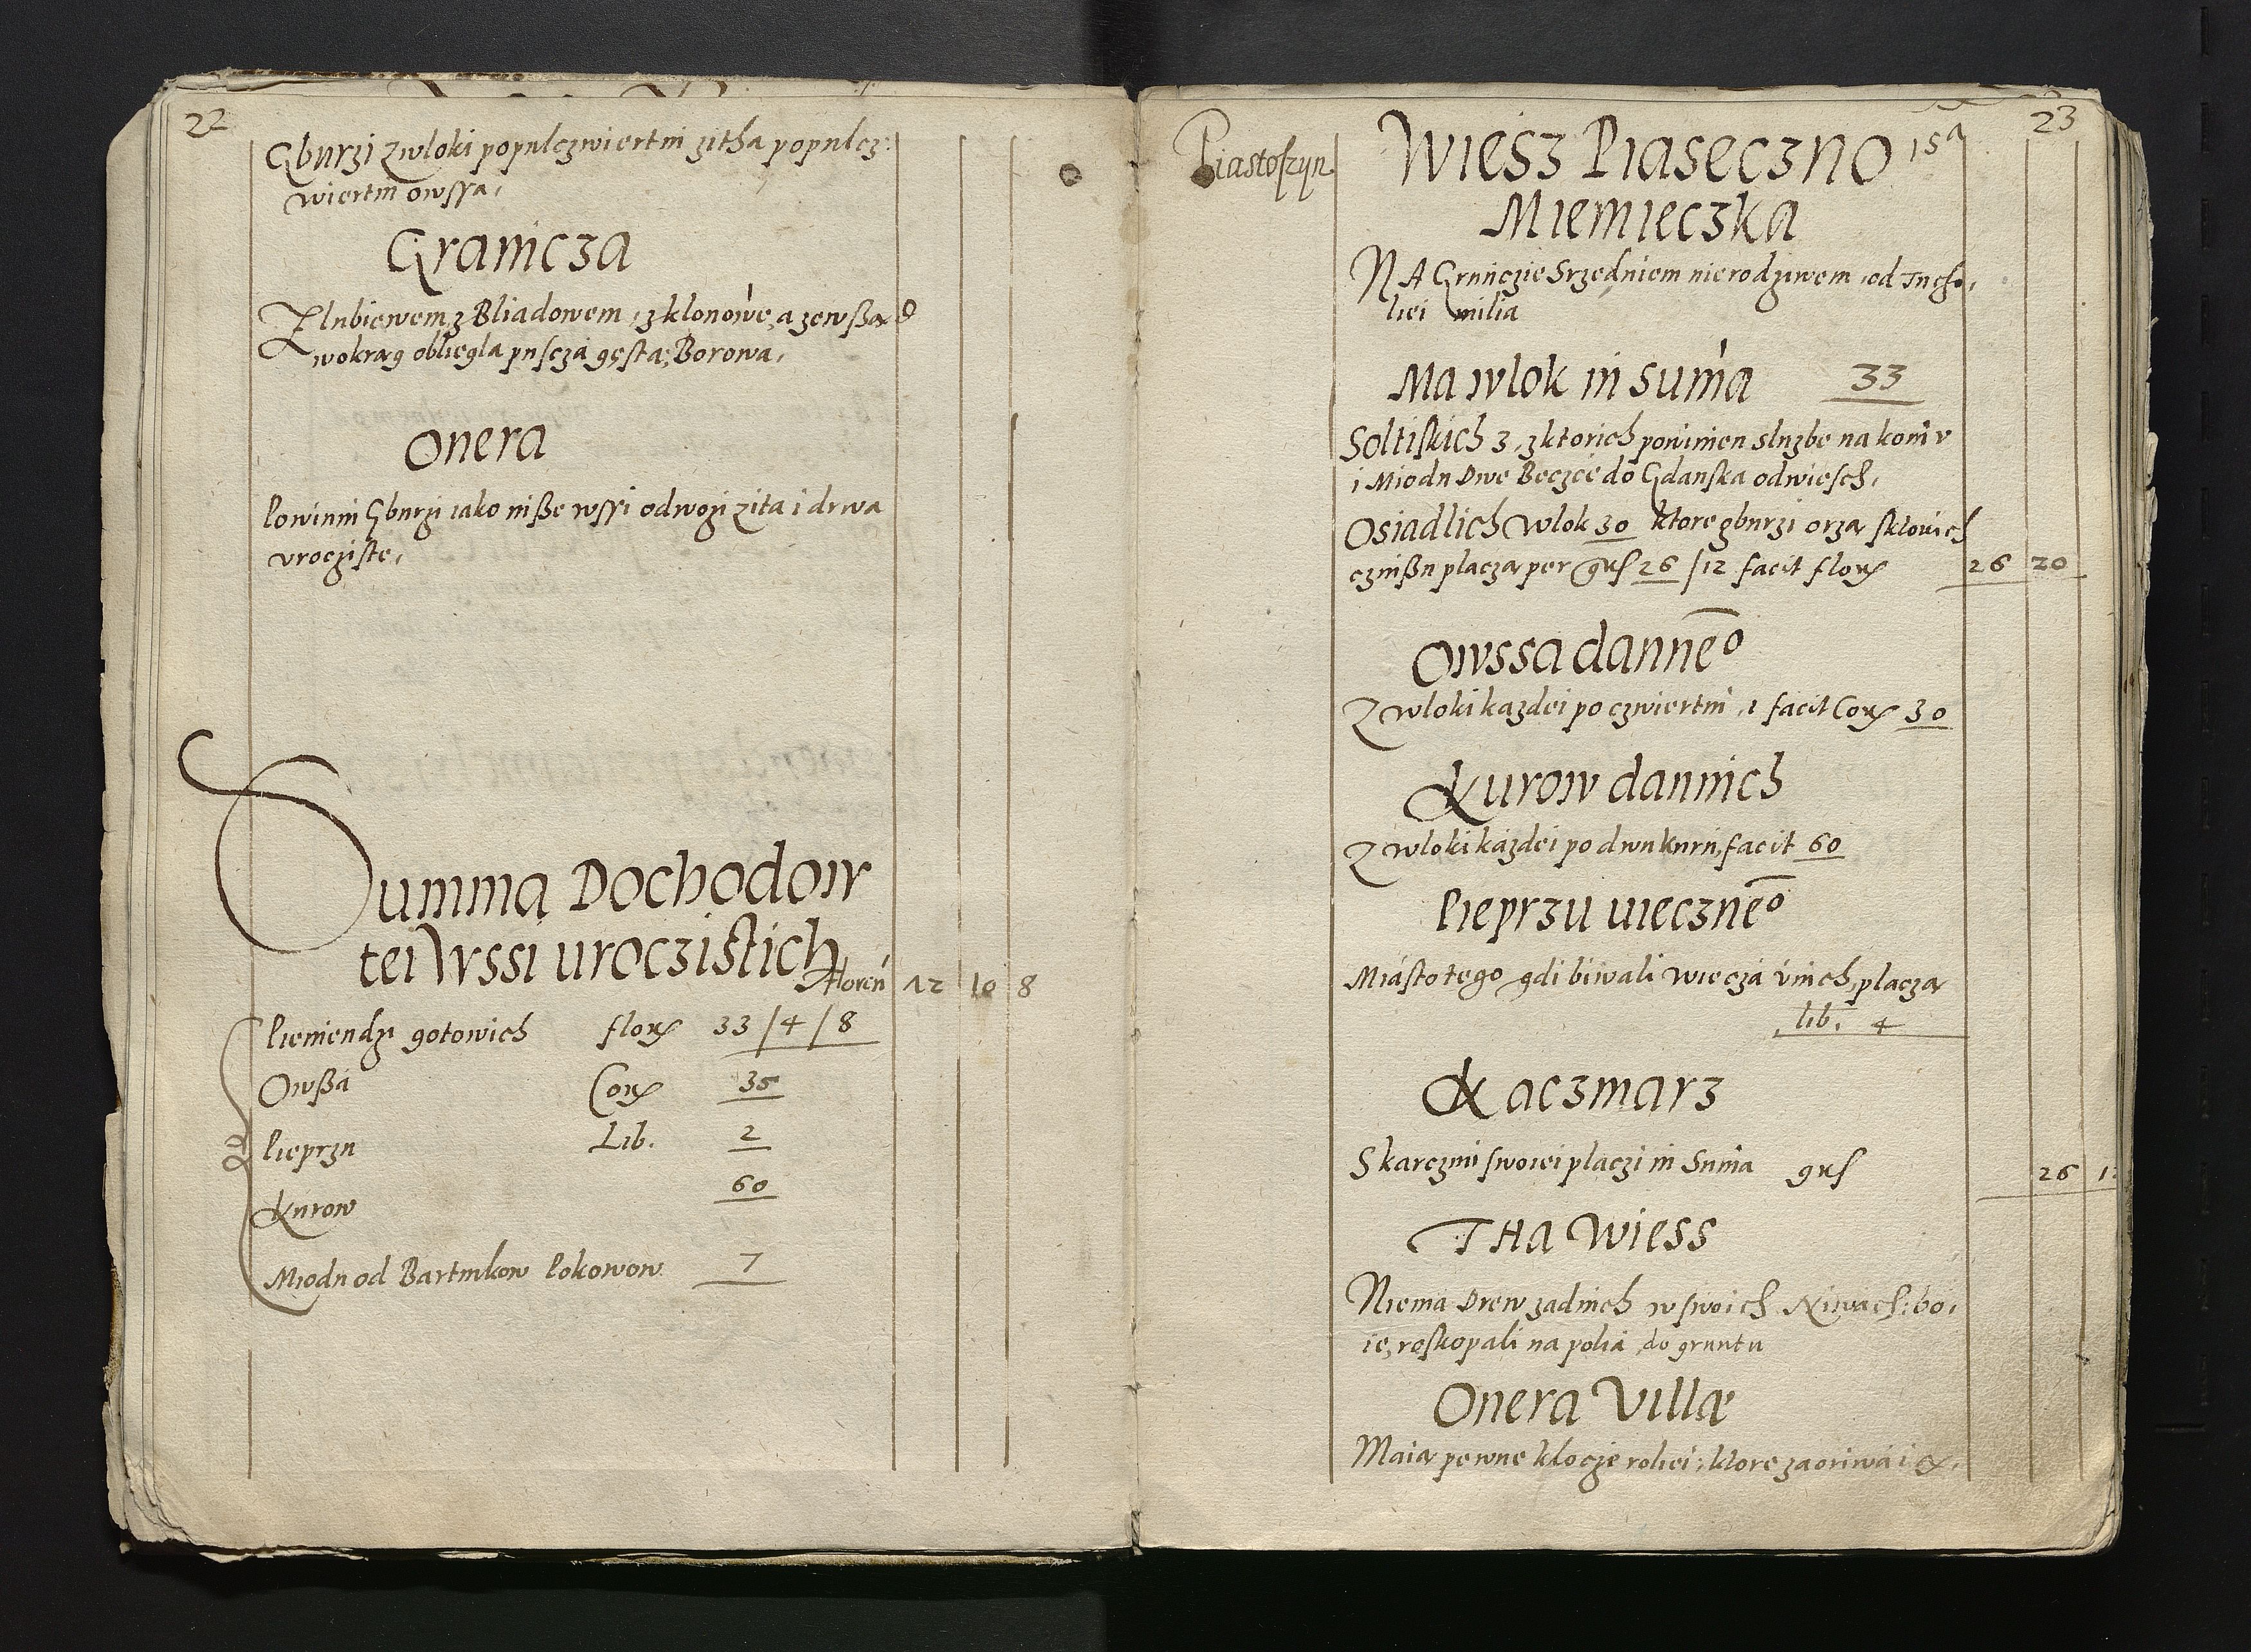 22
Gburzi z wloki populczwiertni zitha populcz:
wiertni owssa,
Granicza
Z lubiewem z Bliadowem, z klonowe, a zewßad
wokrąg obliegla puscza gęsta, Borowa,
Onera
Powinni Gburzi iako niße wssi odwozi zita i drwa
vrocziste,
Summa Dochodow
tei Wssi uroczistich
floren 12 10 8
Pieniendzi gotowich flor 33/4/8
Owßa Cor 35
Pieprzu Lib. 2
Kurow 60
Miodu od Bartnikow Pokowow 7
23
Piastoszyn
Wiesz Piaseczno 1sa
Niemieczka
NA Gruńczie Srzedniem nierodziwem, od Tucho,
liei milia
Ma wlok in suma 33
Soltiskich 3, z ktorich powinien sluzbe na koniv
i Miodu Dwe Beczce do Gdanska odwiesch,
Osiadlich wlok 30 ktore gburzi orzą sktorich
czinßu placzą per grs 26/12 facit flor 26 20
Owssa danneo
Z wloki kazdei po czwiertni, 1 facit Cor 30
Kurow dannich
Z wloki kazdei po dwu kuru, facit 60
Pieprzu wieczneo
Miasto tego gdi biwali wiecza v nich, placzą
lib. 4
Kaczmarz
S karczmi swoiei placzi in Suma grs 26
Tha Wiess
Niema Drew zadnich w swoich Niwach, bo,
ie, roskopali na polia do gruntu
Onera Villæ
Maią pewne klocze roliei, ktore zaoriwa i